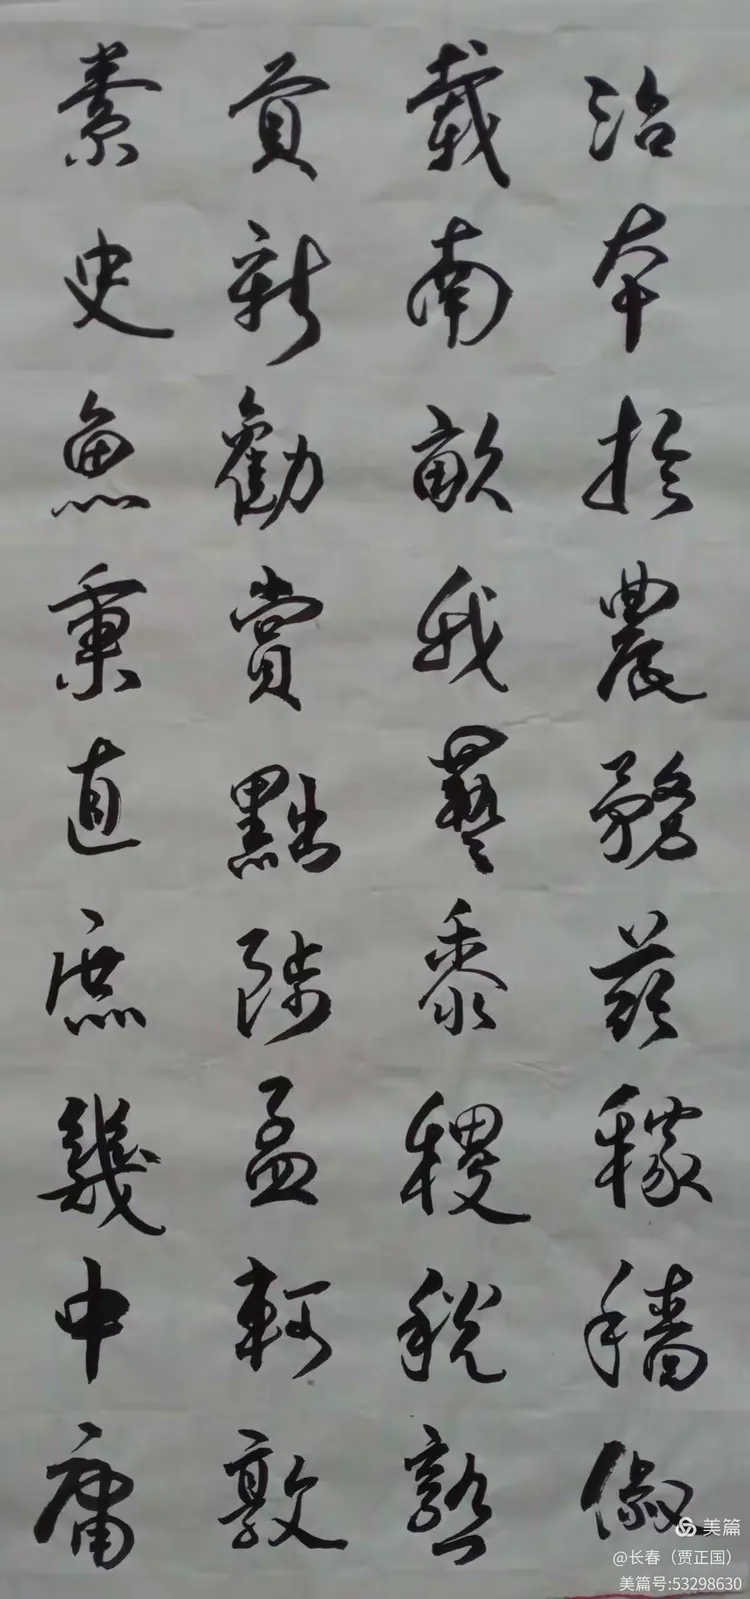 治本於農務茲稼穡俶
載南畝我藝黍稷稅熟
貢新勸賞黜陟孟軻敦
素史魚秉直庶幾中庸
美篇
@长春（贾正国）
美篇号:53298630